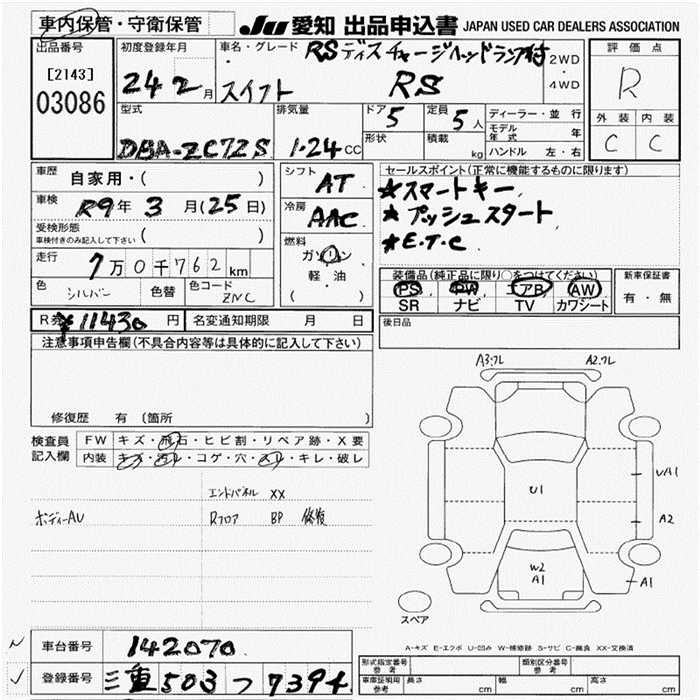 車内保管・守衛保管
JU 愛知 出品申込書 JAPAN USED CAR DEALERS ASSOCIATION
出品番号
[2143]
03086
初度登録年月
24 2月
車名・グレード RSディスチャージヘッドランプ付
スイフト RS
2WD
・
4WD
評価点
R
外装 内装
C C
型式
DBA-ZC72S
排気量
1.24CC
ドア 5
形状
定員 5人
積載 kg
ディーラー・並行
モデル年式 年
ハンドル 左・右
車歴 自家用・( )
車検 R9年 3月(25日)
受検形態
車検付きのみ記入して下さい ( )
走行 7万0千762km
色 シルバー 色替 色コード ZNC
シフト AT
冷房 AAC
燃料
ガソリン
軽・油
( )
セールスポイント(正常に機能するものに限ります)
★スマートキー
★プッシュスタート
★E.T.C
装備品(純正品に限り○をつけてください)
PS PW エアB AW
SR ナビ TV カワシート
新車保証書
有・無
R券 ¥11430円 名変通知期限 月 日
後日品
注意事項申告欄(不具合内容等は具体的に記入して下さい)
修復歴 有 (箇所 )
検査員
記入欄
FW キズ・飛石・ヒビ割・リペア跡・X要
内装 キズ・汚レ・コゲ・穴・スレ・キレ・破レ
エンドパネル XX
ボディーAU Rフロア BP 修復
A3.フレ A2.フレ
U1
UA1
A2
W2
A1
A1
スペア
A-キズ E-エクボ U-凹み W-補修跡 S-サビ C-腐食 XX-交換済
車台番号 142070
登録番号 三重503つ7394
形式指定番号
参考
類別区分番号
参考
車庫証明用
参考
長さ cm 幅 cm 高さ cm